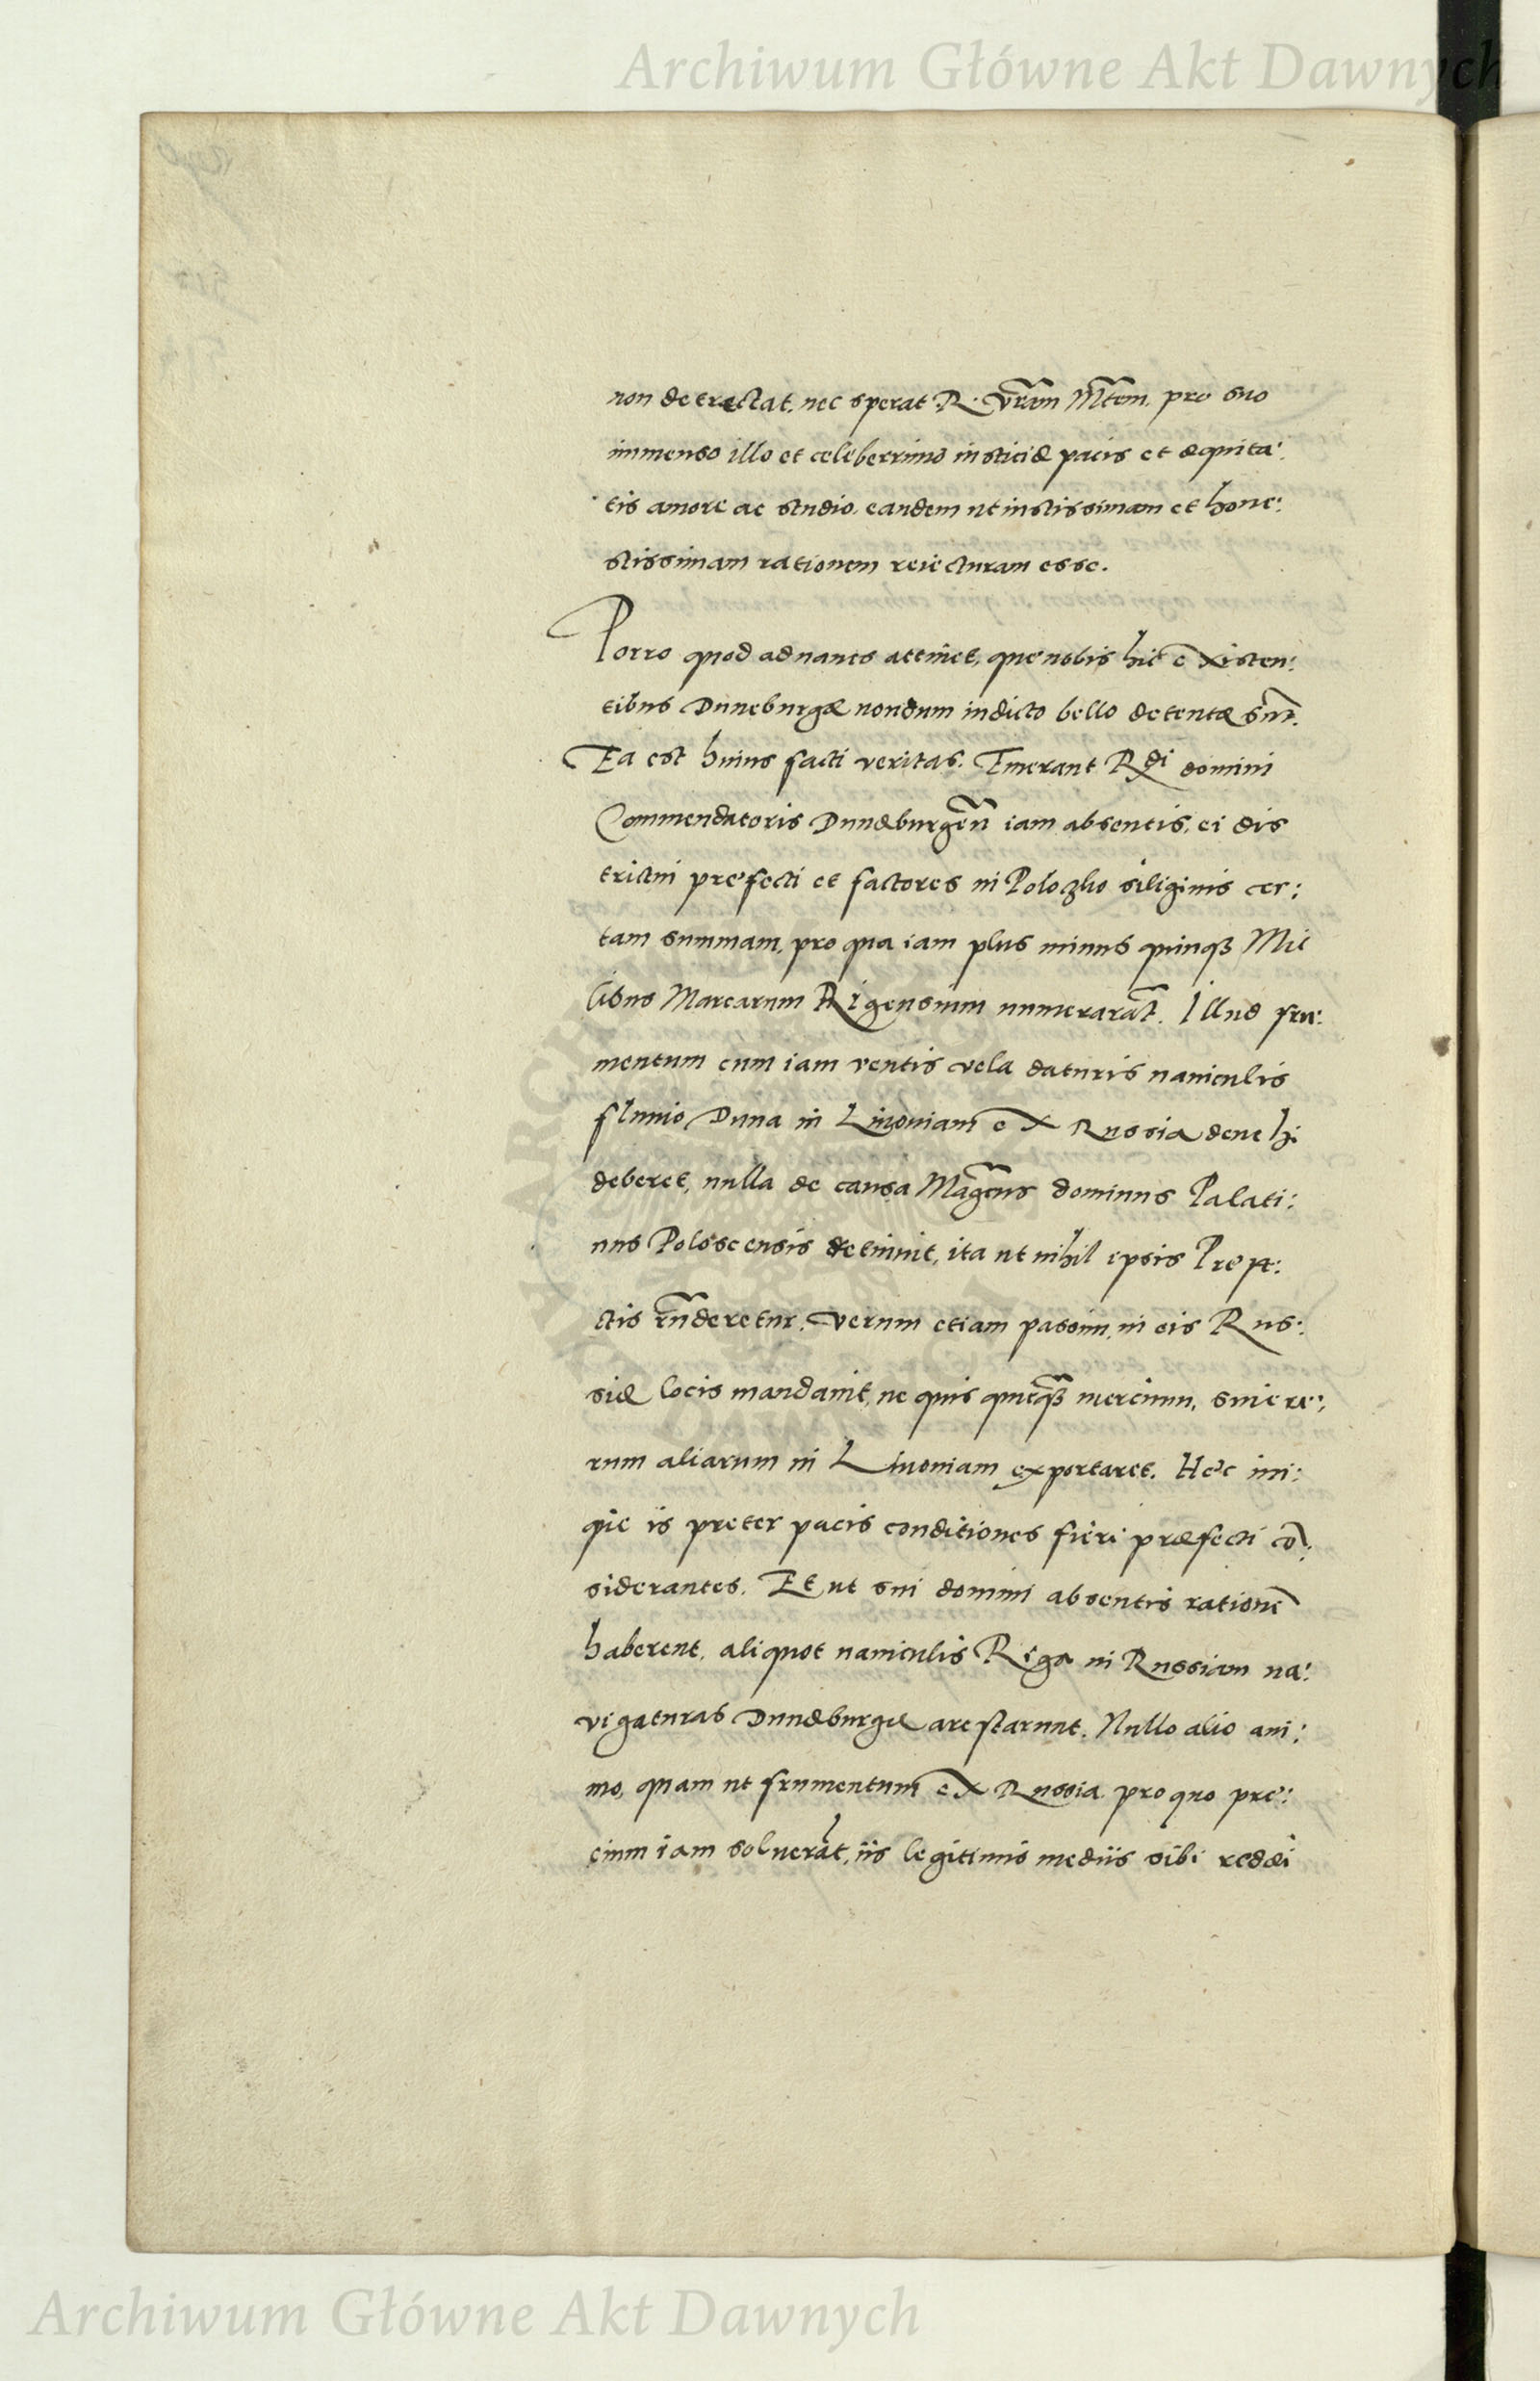 Archiwum Główne Akt Dawnych
non detrectat. nec sperat R. Vram Mtem. pro suo
immenso illo et celeberrimo iusticiæ pacis et æquita:
tis amore ac studio, eandem ut iustissimam et hone:
stissimam rationem reiecturam esse.
Porro quod ad naues attinet, que nobis hic existen:
tibus Duneburgæ nondum indicto bello detentæ sunt.
Ea est huius facti veritas. Emerant Rdi domini
Commendatoris Dunæburgen iam absentis, ei dis
trictui prefecti et factores in Poloczko siliginis cer:
tam summam, pro qua iam plus minus quinqʒ Mil
libus Marcarum Rigensium numerarāt. Illud fru:
mentum cum iam ventis vela daturis nauiculis
fluuio Duna in Liuoniam ex Russia deuehi
deberet, nulla de causa Magcus dominus Palati:
nus Poloscensis detinuit, ita ut nihil ipsis Prefe:
ctis rnderetur. Verum etiam passim in eis Rus:
siæ locis mandauit, ne quis quicqʒ mercium, siue re:
rum aliarum in Liuoniam exportaret. Hec ini:
que iis preter pacis conditiones fieri præfecti cō:
siderantes. Et ut sui domini absentis rationē
haberent, aliquot nauiculis Riga in Russiam na:
vigaturas Dunæburgæ arestarunt. Nullo alio ani:
mo, quam ut frumentum ex Russia pro quo pre:
cium iam soluerāt, iis legitimis mediis sibi reddi
Archiwum Główne Akt Dawnych